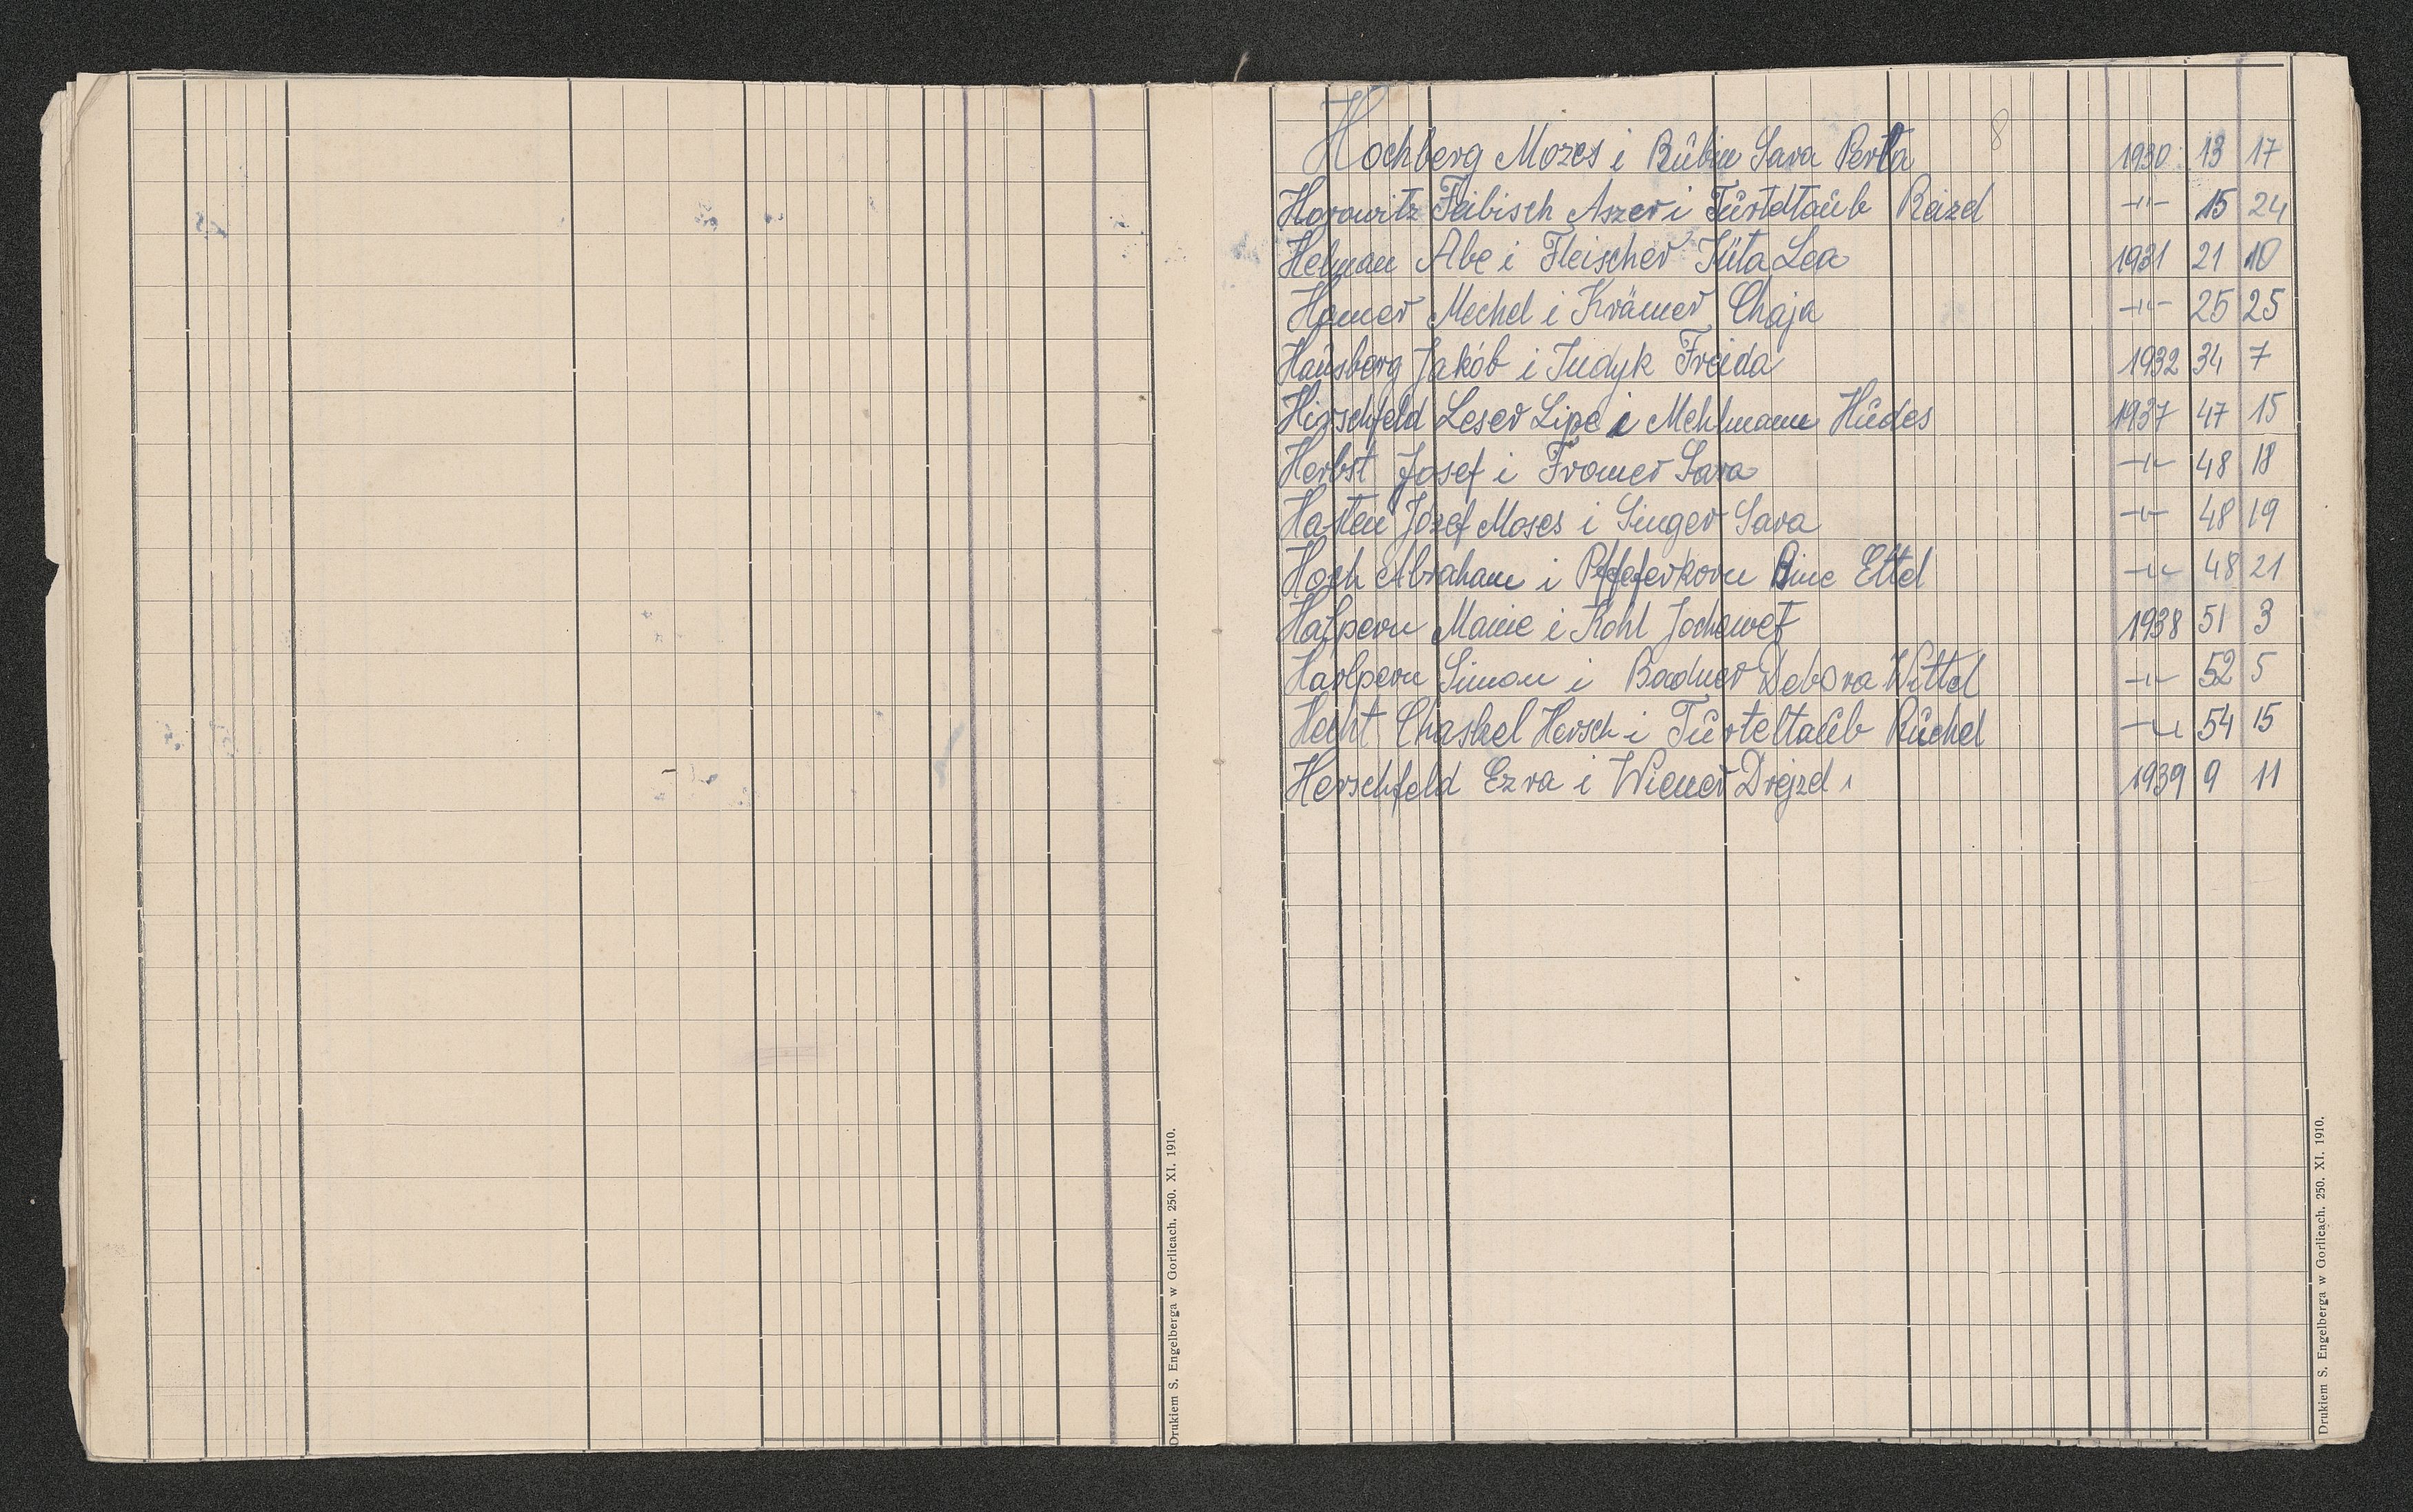 8
Hochberg Mozes i Rûbin Sara Perla 1930 13 17
Horowitz Feibisch Aszer i Tûrteltaûb Reizel -"- 15 24
Helman Abe i Fleischer Jûta Lea 1931 21 10
Hamer Mechel i Krämer Chaja -"- 25 25
Haûsberg Jakób i Judyk Freida 1932 34 7
Hirschfeld Leser Lipe i Mehlmann Hûdes 1937 47 15
Herbst Josef i Fromer Sara -"- 48 18
Hasten Józef Moses i Singer Sara -"- 48 19
Hoch Abraham i Pfefferkorn Ettel -"- 48 21
Halpern i Kohl Jochewet 1938 51 3
Harlpern Simon i Debora Wittel -"- 52 5
Hecht Chaskel Hersch i Tûrteltaûb Rûchel -"- 54 15
Herschfeld Ezra i Wiener Drejzel 1939 9 11
Drukiem S. Engelberga w Gorlicach. 250. XI. 1910.
Drukiem S. Engelberga w Gorlicach. 250. XI. 1910.